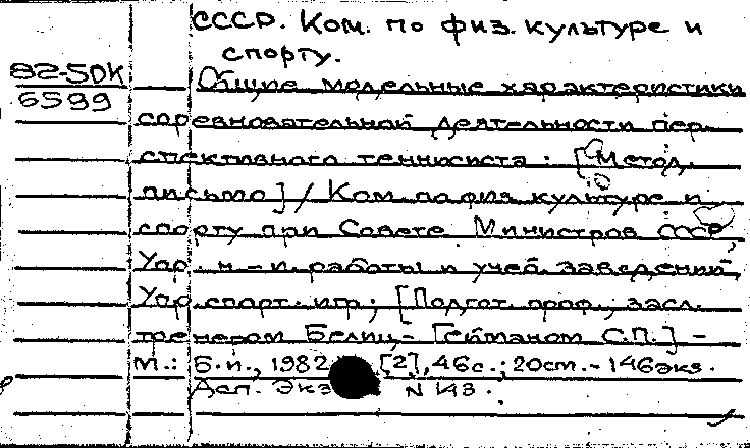 СССР. Ком. по физ. культуре и
спорту.
82-5DK
6599
Общие модельные характеристики
соревновательной деятельности пер-
спективного теннисиста: [Метод.
письмо] / Ком. по физ. культуре и
спорту при Совете Министров СССР,
Упр. н.-и. работы и учеб. заведений,
Упр. спорт. игр; [Подгот. проф., засл.
тренером Белиц-Гейманом С.П.] -
М.: Б.и., 1982 [2], 46с.; 20см. - 146экз.
Деп. Экз N 143.